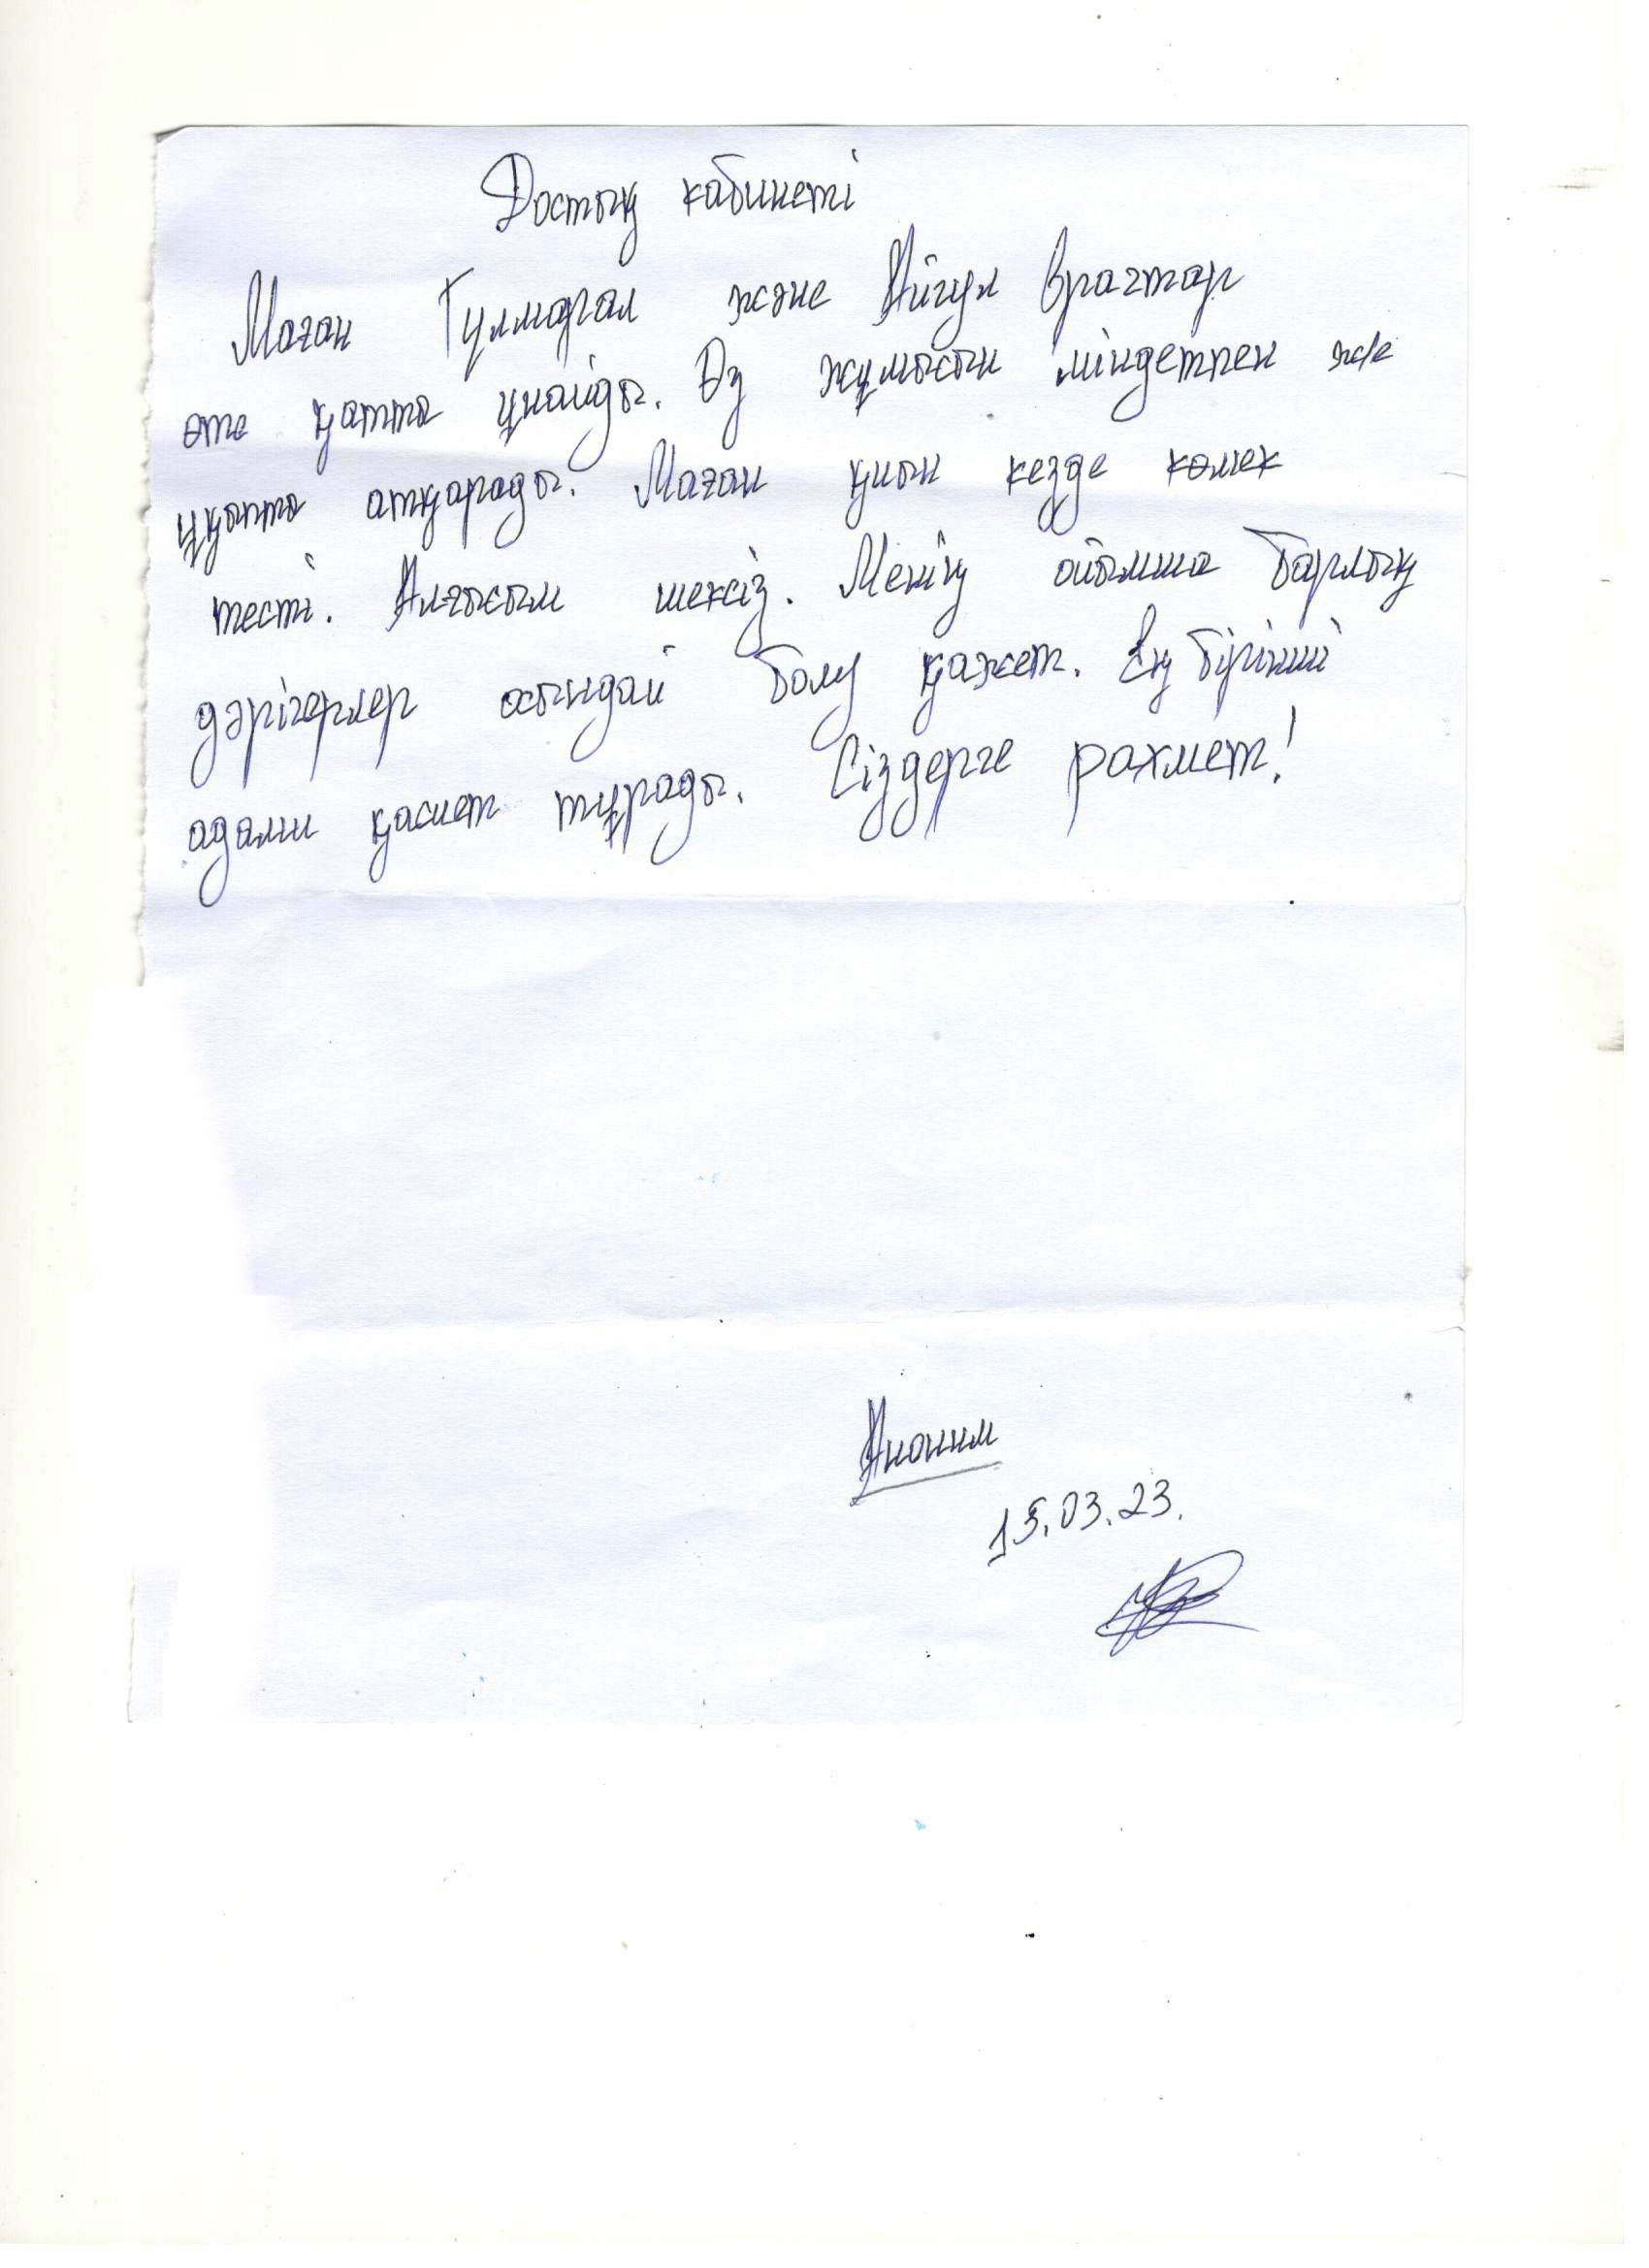 Достық кабинеті
Маған Гулмарал және Айгул врачтар
өте қатты ұнайды. Өз жұмысын міндетпен ж/е
ұқыпты атқарады. Маған қиын кезде көмек
тесті. Алғысым шексіз. Менің ойымша барлық
дәрігерлер осындай болу қажет. Ең бірінші
адами қасиет тұрады. Сіздерге рахмет!
Аноним
15.03.23.